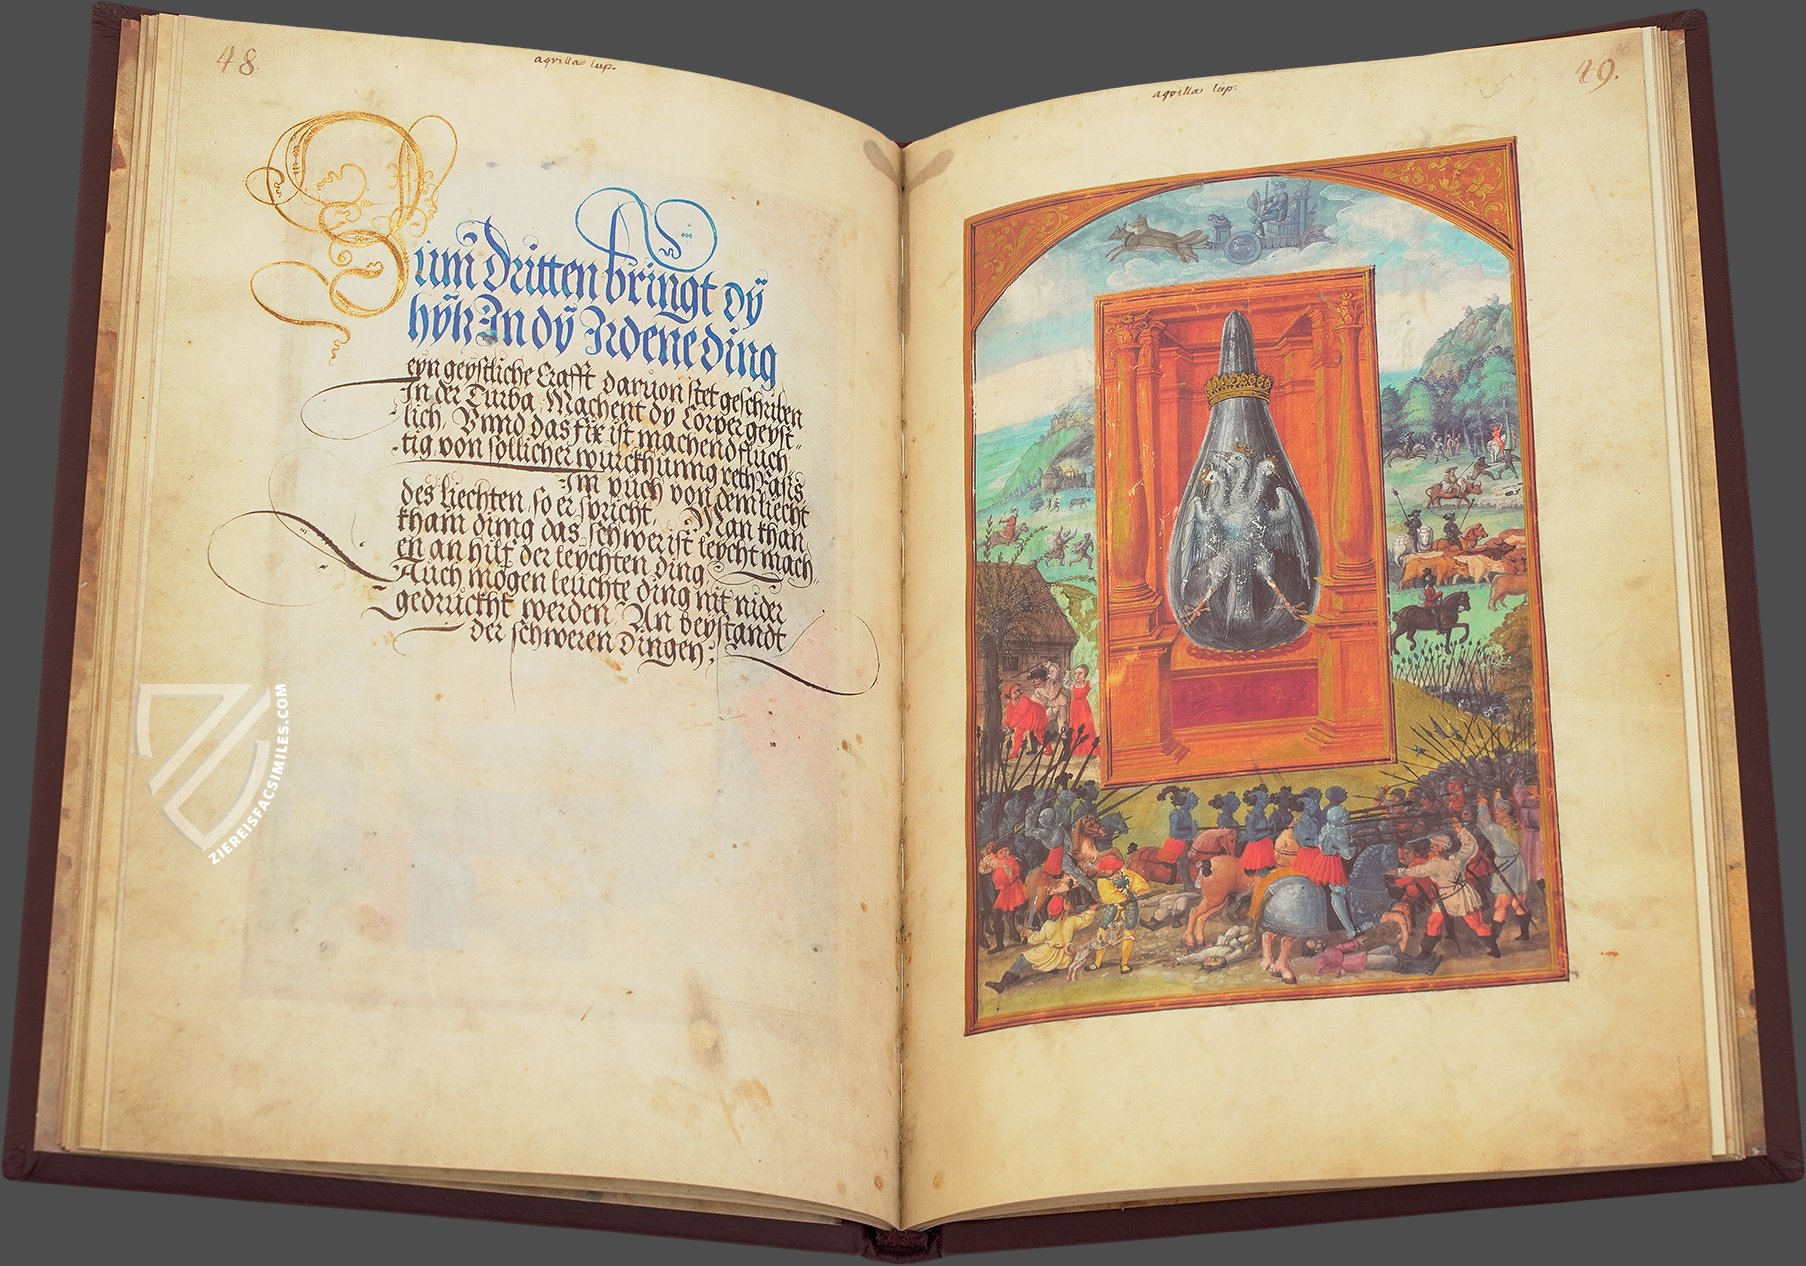 48.
aqvilla lup.
Zum Dritten bringt dÿ
hÿtz In dÿ Irdene ding
eyn geystliche Crafft daruon stet geschriben
In der Turba Machent dy Corper geyst-
lich, Vnnd das fix ist machend fluch-
tig von sollicher wurckhunng reth Rasis
Im puch von dem liecht
des liechten, so er spricht, Man khan
kham ding das schwer ist leycht mach
en an hilf der leychten ding
Auch mögen leuchte ding nit nider
gedruckht werden An beystandt
der schweren Dingen:
ZIEREISFACSIMILES.COM
aqvilla lup:
49.